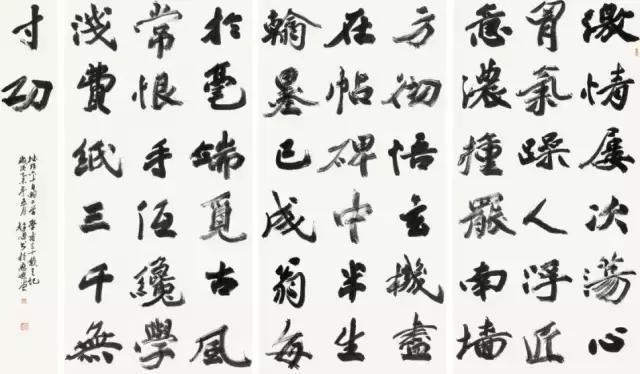 激情屢次蕩心
胷氣躁人浮匠
意濃撞罷南墙
方彻悟玄機盡
在帖碑中半生
翰墨已成翁每
於毫端覓古風
常恨手低纔學
淺費紙三千無
寸功